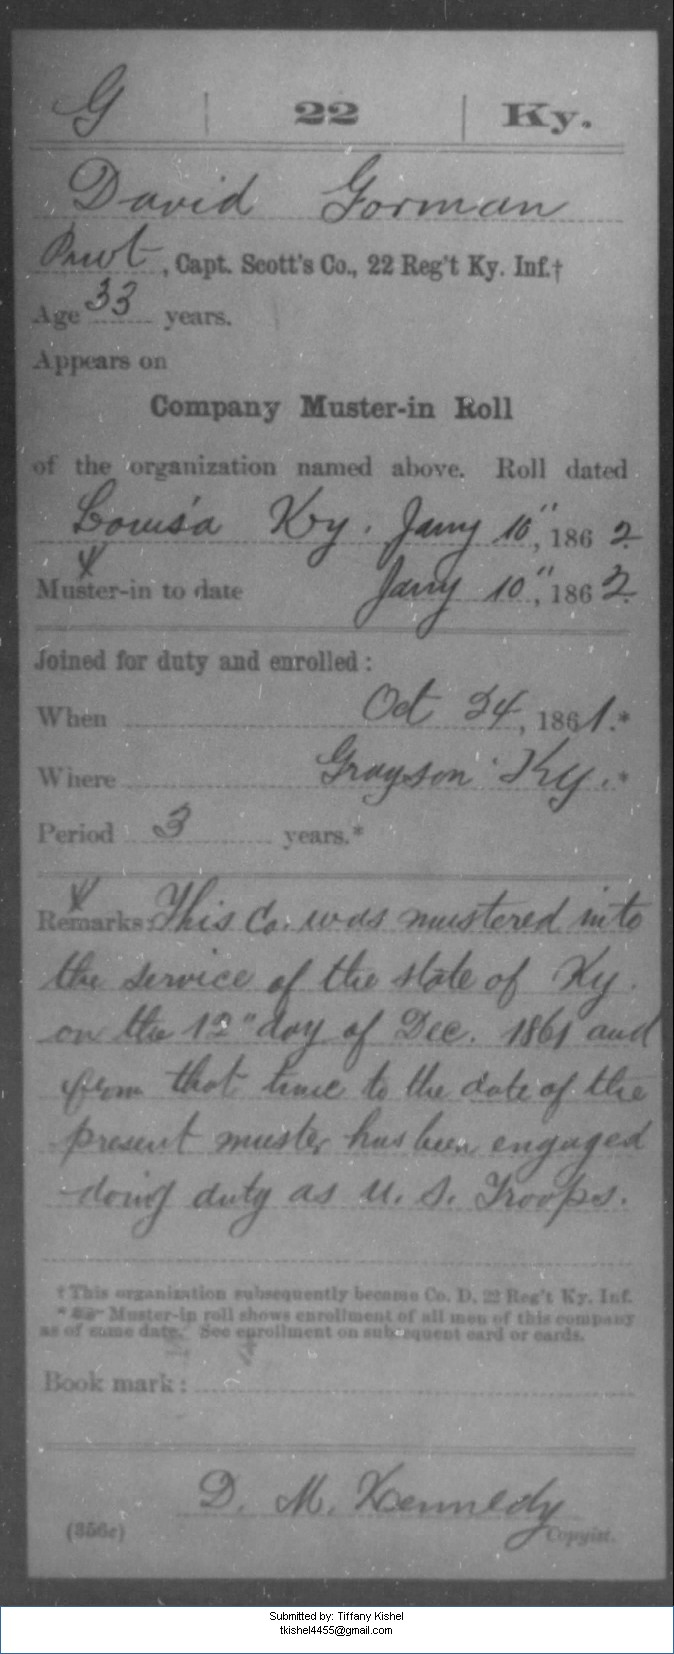 G | 22 | Ky.
David Gorman
Privt, Capt. Scott's Co., 22 Reg't Ky. Inf.†
Age 33 years.
Appears on
Company Muster-in Roll
of the organization named above. Roll dated
Louisa Ky. Jany 10", 1862.
Muster-in to date Jany 10", 1862.
Joined for duty and enrolled:
When Oct 24, 1861.*
Where Grayson Ky.*
Period 3 years.*
Remarks: This Co. was mustered into
the service of the state of Ky.
on the 12" day of Dec. 1861 and
from that time to the date of the
present muster has been engaged
doing duty as U. S. Troops.
†This organization subsequently became Co. D, 22 Reg't Ky. Inf.
* Muster-in roll shows enrollment of all men of this company
as of same date. See enrollment on subsequent card or cards.
Book mark:
D. M. Kennedy
(356c) Copyist.
Submitted by: Tiffany Kishel
tkishel4455@gmail.com